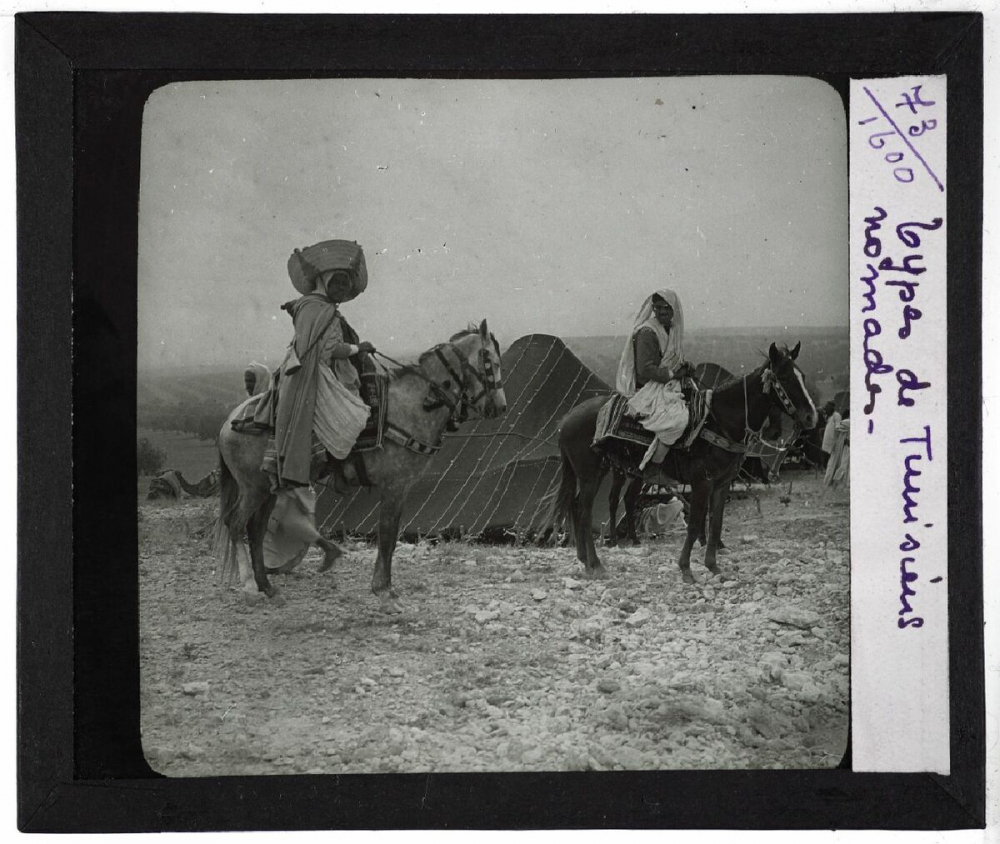 73/1600
types de Tunisiens
nomades-